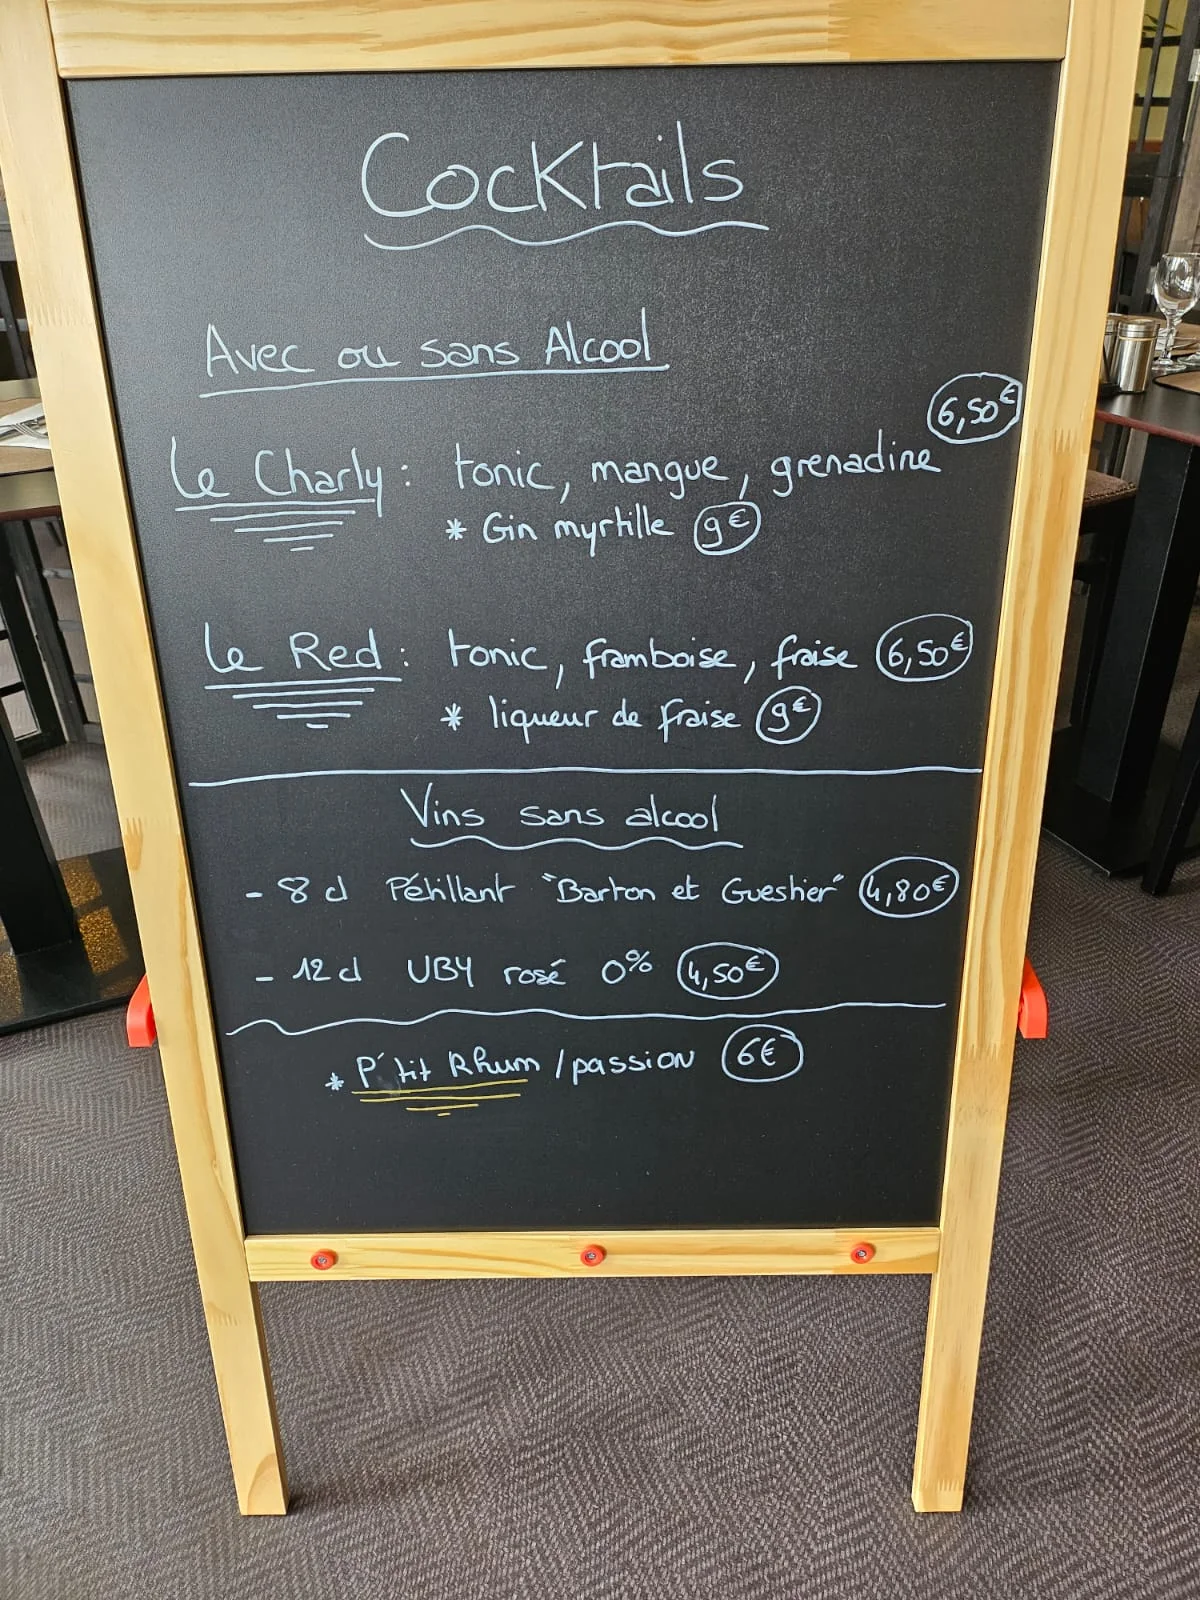 Cocktails
Avec ou sans Alcool
6,50€
Le Charly : tonic, mangue, grenadine
* Gin myrtille 9€
Le Red : tonic, framboise, fraise 6,50€
* liqueur de fraise 9€
Vins sans alcool
- 8 cl Pétillant "Barton et Guestier" 4,80€
- 12 cl UBY rosé 0% 4,50€
* P'tit Rhum / passion 6€